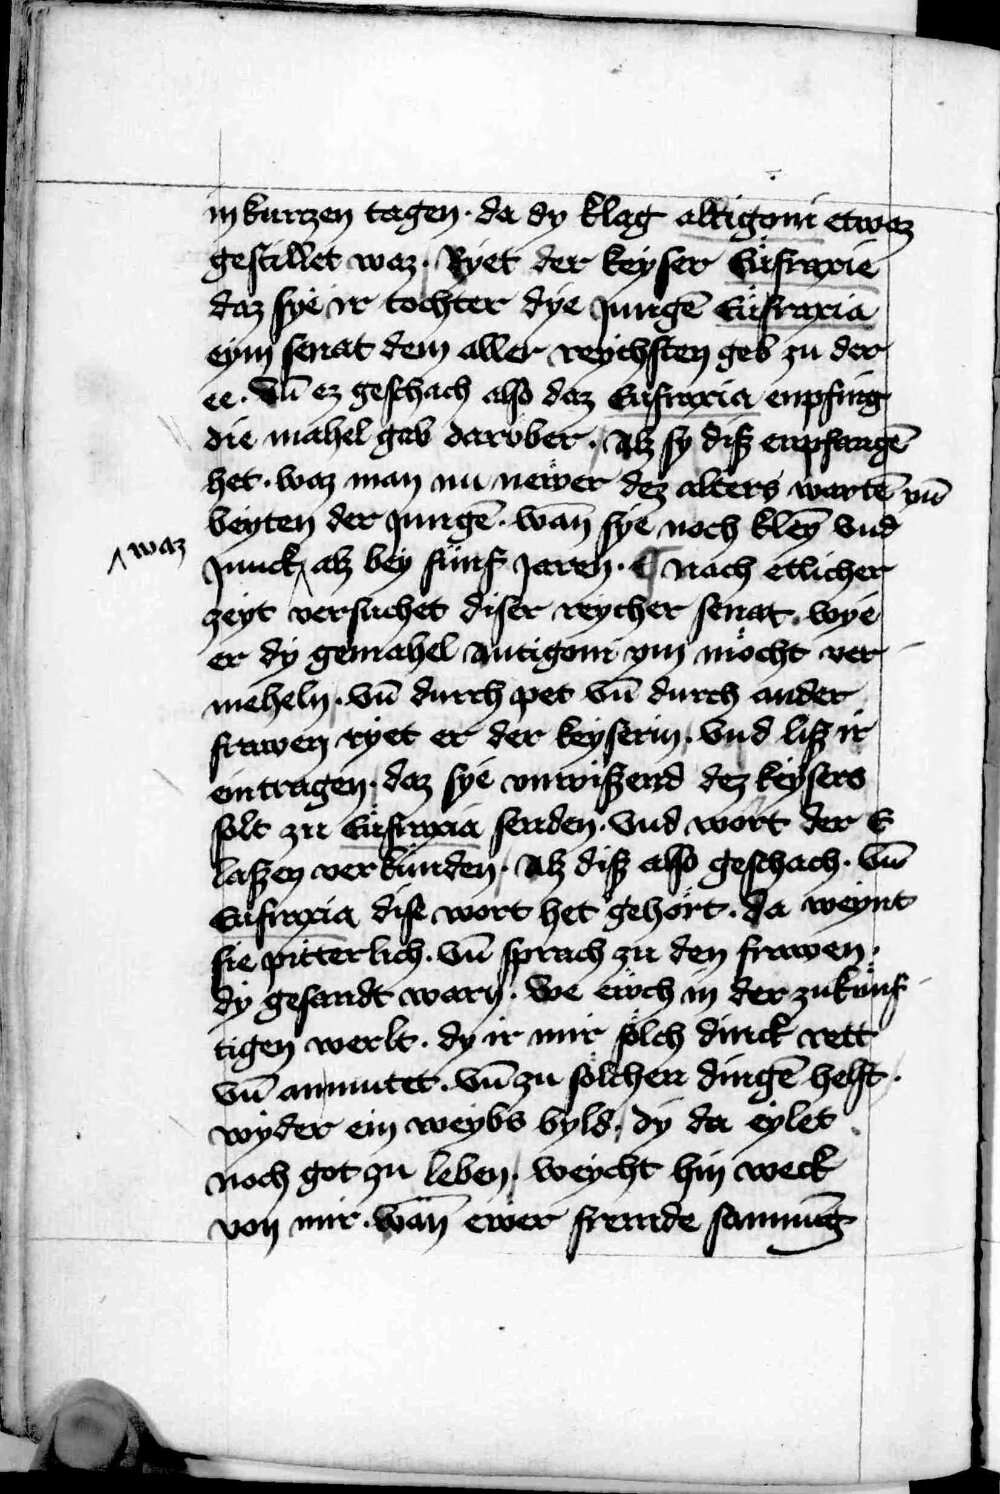 in kurczen tagen · da dy klag alligoni etwaz
gestillet waz · Ryet der keyser Eüfraxie
daz sye ir tochter dye Jungē Eüfraxia
eym senat dem aller reychsten geb zu der
ee · Vn̄ ez geschach also daz Eufraxia enpfing
die mahel gab darvber · Alz sy diß enpfangē
het · waz man nu newer dez alters wartē vn̄
beyten der Jungē · wan̄ sye noch kley̅ vnd
Junck ^waz alz bey fünf Jaren · ¶ Nach etlicher
zeyt versuchet diser reycher senat wye
er dy gemahel Antigoni ym möcht ver-
meheln · vn̄ durch pet vn̄ durch ander
frawen ryet er der keyserin · vnd liß ir
eintragen · daz sye vnwißend dez keysers
solt zu Eüfraxia senden · vnd wort der E
laßen verkünden · Alz diß also geschach · vn̄
Eufraxia dise wort het gehört · da weynt
sie pitterlich · vn̄ sprach zu den frawen ·
dy gesandt warn · We ewch in der zukünf-
tigen werlt · dy ir mir sölch dinck rett
vn̄ anmutet · vn̄ zu sölchen dingē helft ·
wyder ein weybs byld · dy da eylet
noch got zu leben · weycht hin weck
von mir · wan̄ ewer fremde samnūg